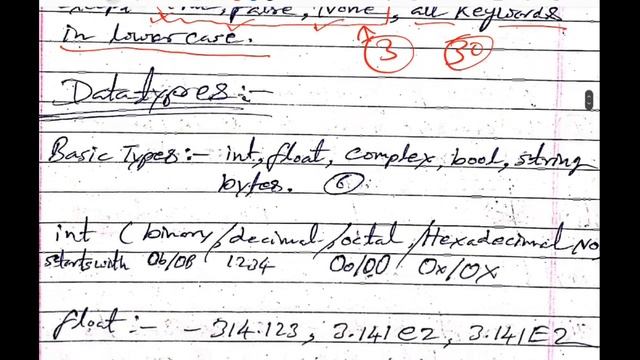 False, None), all keywords
in lower case.
3 30
Datatypes:-
Basic Types:- int, float, complex, bool, string
bytes. 6
int (binary/decimal/octal/Hexadecimal No
starts with 0b/0B 1234 0o/0O 0x/0X
float:- - 314.123, 3.141e2, 3.141E2